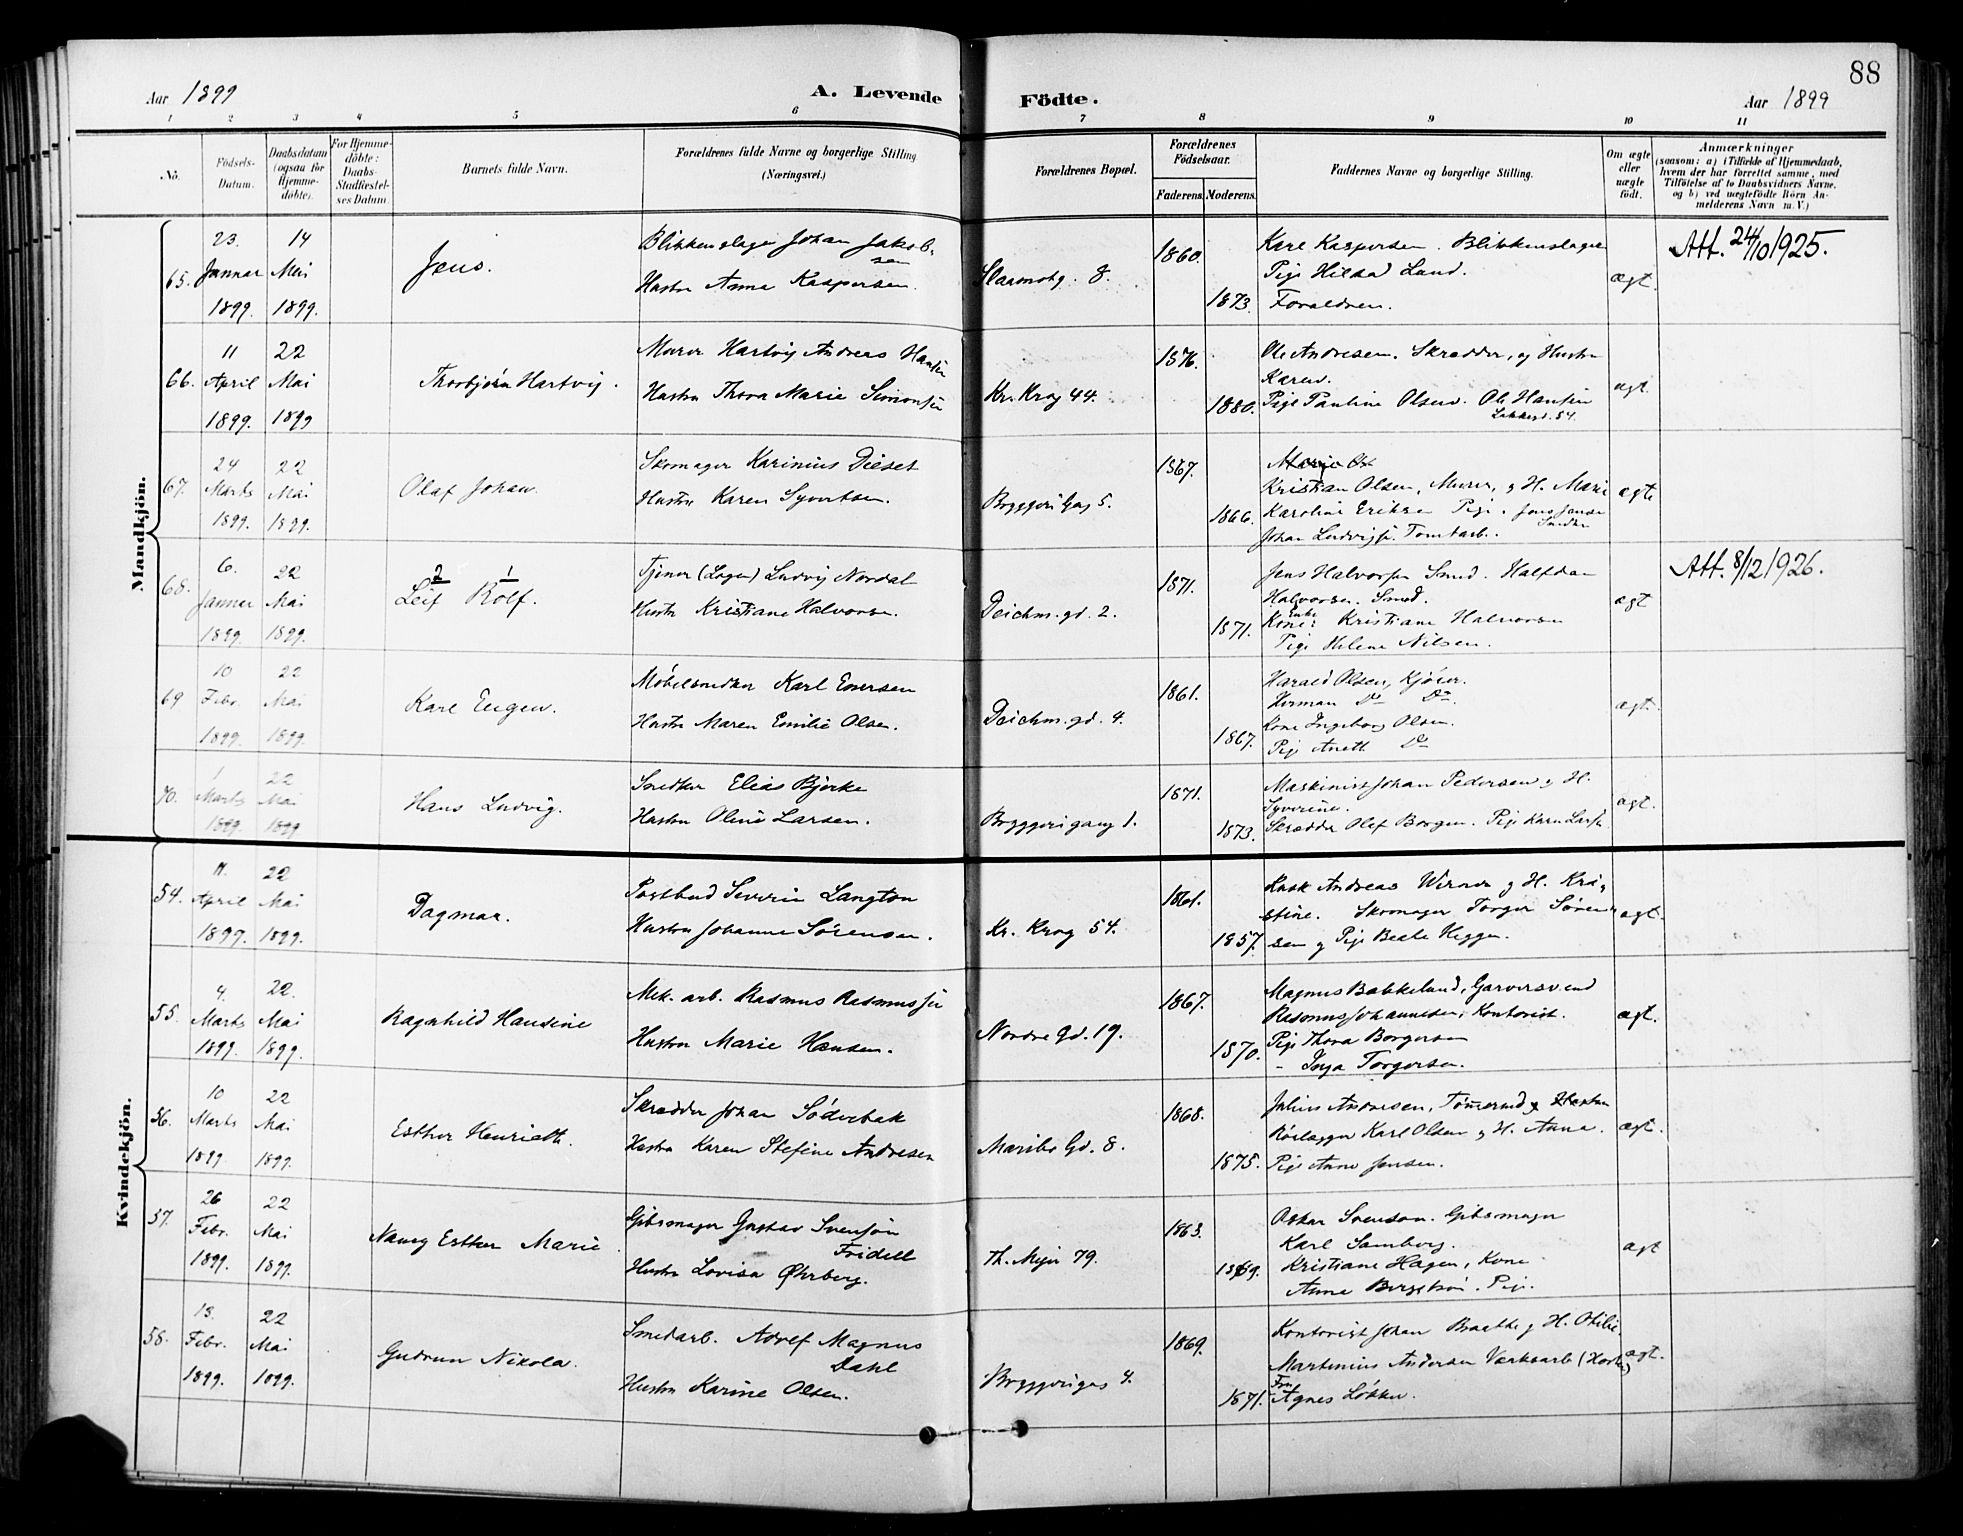 88
Aar 1899
A. Levende Födte.
Aar 1899
1 2 3 4 5 6 7 8 9 10 11
No.
Födsels-Datum.
Daabsdatum (ogsaa for Hjemme-döbte).
For Hjemme-döbte: Daabs-Stadfæstel-ses Datum.
Barnets fulde Navn.
Forældrenes fulde Navne og borgerlige Stilling (Næringsvei.)
Forældrenes Bopæl.
Forældrenes Födselsaar.
Faderens. Moderens.
Faddernes Navne og borgerlige Stilling.
Om ægte eller uægte födt.
Anmærkninger
(saasom: a) i Tilfælde af Hjemmedaab,
hvem der har forrettet samme, med
Tilföielse af to Daabsvidners Navne,
og b) ved uægtefödte Börn An-
melderens Navn m. V.)
Mandkjön.
65.
23. Januar 1899.
14 Mai 1899.
Jens.
Blikkenslager Johan Jakob-
sen
Hustru Anna Kaspersen.
8.
1860.
1873.
Karl Kaspersen. Blikkenslager
Pige Hilda Lund.
Forældren.
ægt.
Att. 24/10 1925.
66.
11 April 1899.
22 Mai 1899
Thorbjørn Hartvig.
Murer Hartvig Andreas Hansen
Hustru Thora Marie Simonsen
Kr. Krog 44.
1876.
1880.
Ole Andresen. Skrædder, og Hustru
Karen.
Pige Pauline Olsen. Ole Hansen
54.
ægt.
67.
24 Marts 1899.
22 Mai 1899.
Olaf Johan.
Skomager Karinius Dieset
Hustru Karen Syvertsen.
Bryggeri Gag 5.
1867.
1866.
Kristian Olsen, Murer, og H. Marie
Karoline Eriksen Pige. Jens Jensen
Snedker
Johan Ludvigsen. Tomtarb.
ægte
68.
6. Januar 1899.
22 Mai 1899.
2 1
Leif Rolf.
Tjener (Logen) Ludvig Nordal
Hustru Kristiane Halvorsen.
Deichm. gd. 2.
1871.
1871.
Jens Halvorsen Smed. Halfdan
Halvorsen. Smed.
Enke
Kone: Kristiane Halvorsen
Pige Helene Nilsen.
ægt
Att. 8/12 1926.
69
10 Febr. 1899.
22 Mai 1899.
Karl Eugen.
Møbelsnedker Karl Eversen
Hustru Maren Emilie Olsen.
Deichm. gd. 4.
1861.
1867.
Harald Olsen, Kjører.
Herman Do Do.
Kone Ingeborg Olsen.
Pige Anett Do
ægt.
70.
1 Marts 1899.
22 Mai 1899
Hans Ludvig.
Snedker Elias Bjerke
Hustru Oline Larsen.
Bryggerigang 1.
1871.
1873.
Maskinist Johan Pedersen og H.
Syverine.
Skrædder Olef Borgen. Pige Karen Larsen
ægt.
Kvindekjön.
54.
11. April 1899.
22 Mai 1899.
Dagmar.
Postbud Severin Langton
Hustru Johanne Sørensen.
Kr. Krog 54.
1861.
1857.
Kusk Andreas Werner og H. Kri-
stine. Skomager Torger Søren-
sen og Pige Beate Heggen.
ægt.
55.
4. Marts 1899.
22. Mai 1899.
Ragnhild Hansine
Mek. arb. Rasmus Rasmussen
Hustru Marie Hansen.
Nordre Gd. 19.
1867.
1870.
Magnus Bakkelund, Garversvend
Rasmus Johannesen, Kontorist.
Pige Thora Borgersen
- Inga Torgersen.
ægt.
56.
10 Marts 1899
22 Mai 1899.
Esther Henriette.
Skrædder Johan Söderbak
Hustru Karen Stefine Andresen
Maribo Gd. 8.
1868.
1875.
Julius Andresen, Tømmermd og Hustru
Rørlægger Karl Olsen og H. Anna.
Pige Anna Jensen.
ægt.
57.
26 Febr. 1899.
22 Mai 1899.
Nancy Esther Marie.
Gibsmager Gustav Svensson
Fridell
Hustru Lovisa Øhrberg.
Th. Meyer 79.
1863.
1869.
Oskar Svenson. Gibsmager
Karl Samberg.
Kristiane Hagen, Kone
Anna Bergstrøm. Pige.
ægt
58.
13. Febr. 1899.
22 Mai 1899.
Gudrun Nikola.
Smedarb. Adolf Magnus
Dahl
Hustru Karine Olsen.
Bryggerigag 4.
1869.
1871.
Kontorist Johan Braathe og H. Otilie.
Martinius Andersen Værksarb (Horten)
Fru
Agnes Løkken.
ægt.